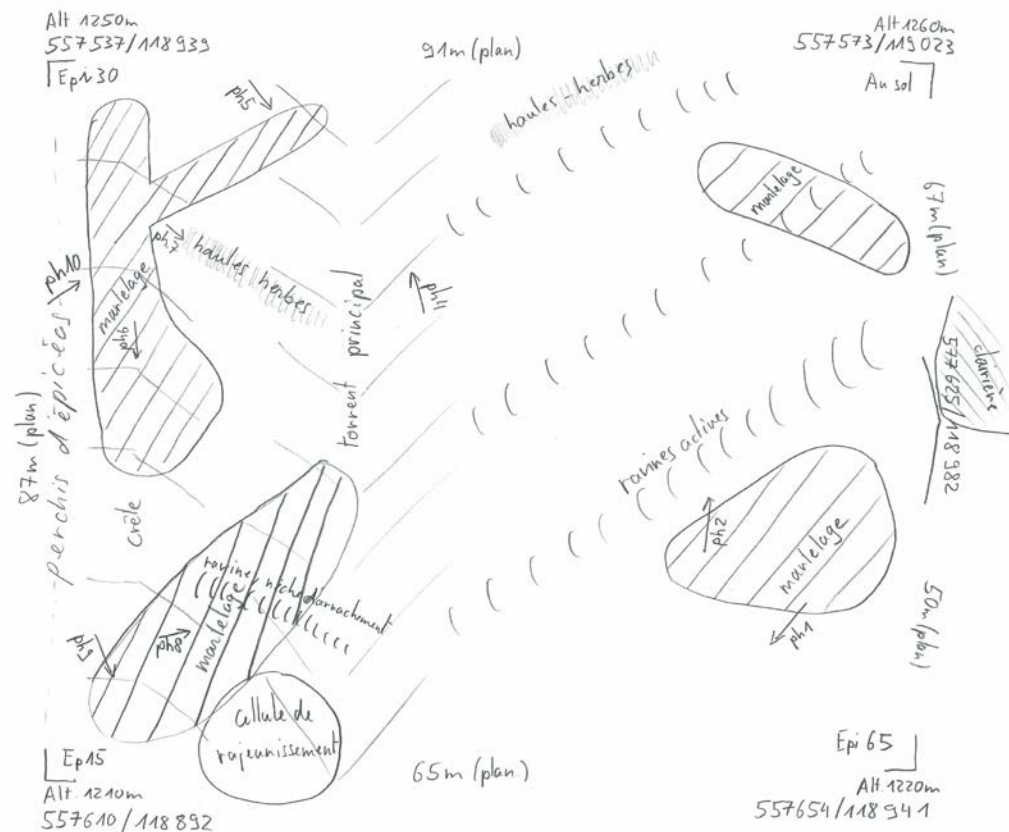 Alt 1250m
557537/118939
Epi 30
91m (plan)
Alt 1260m
557573/119023
Au sol
ph5
hautes-herbes
martelage
67m (plan)
ph7
hautes herbes
ph10
martelage
ph6
torrent principal
ph11
clairière
577625/118982
87m (plan)
perchis d'épicéas
crête
ravines actives
ph2
martelage
ph1
50m (plan)
ravine, niche d'arrachement
martelage
ph8
ph9
cellule de
rajeunissement
Ep15
Alt. 1210m
557610/118892
65m (plan.)
Epi 65
Alt. 1220m
557654/118941